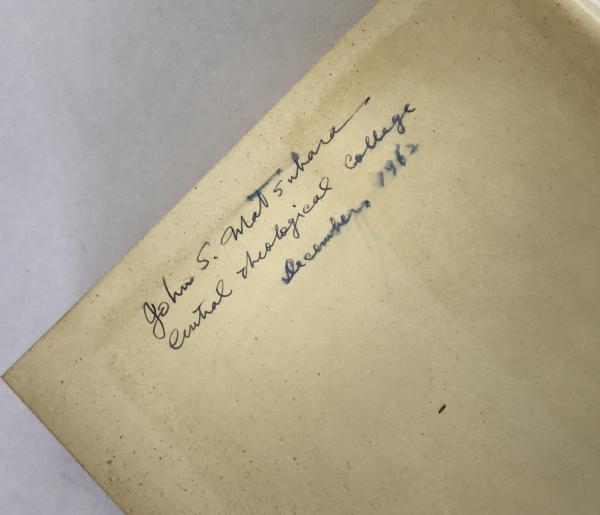 John S. Matsuhara
Central Theological College
December, 1962